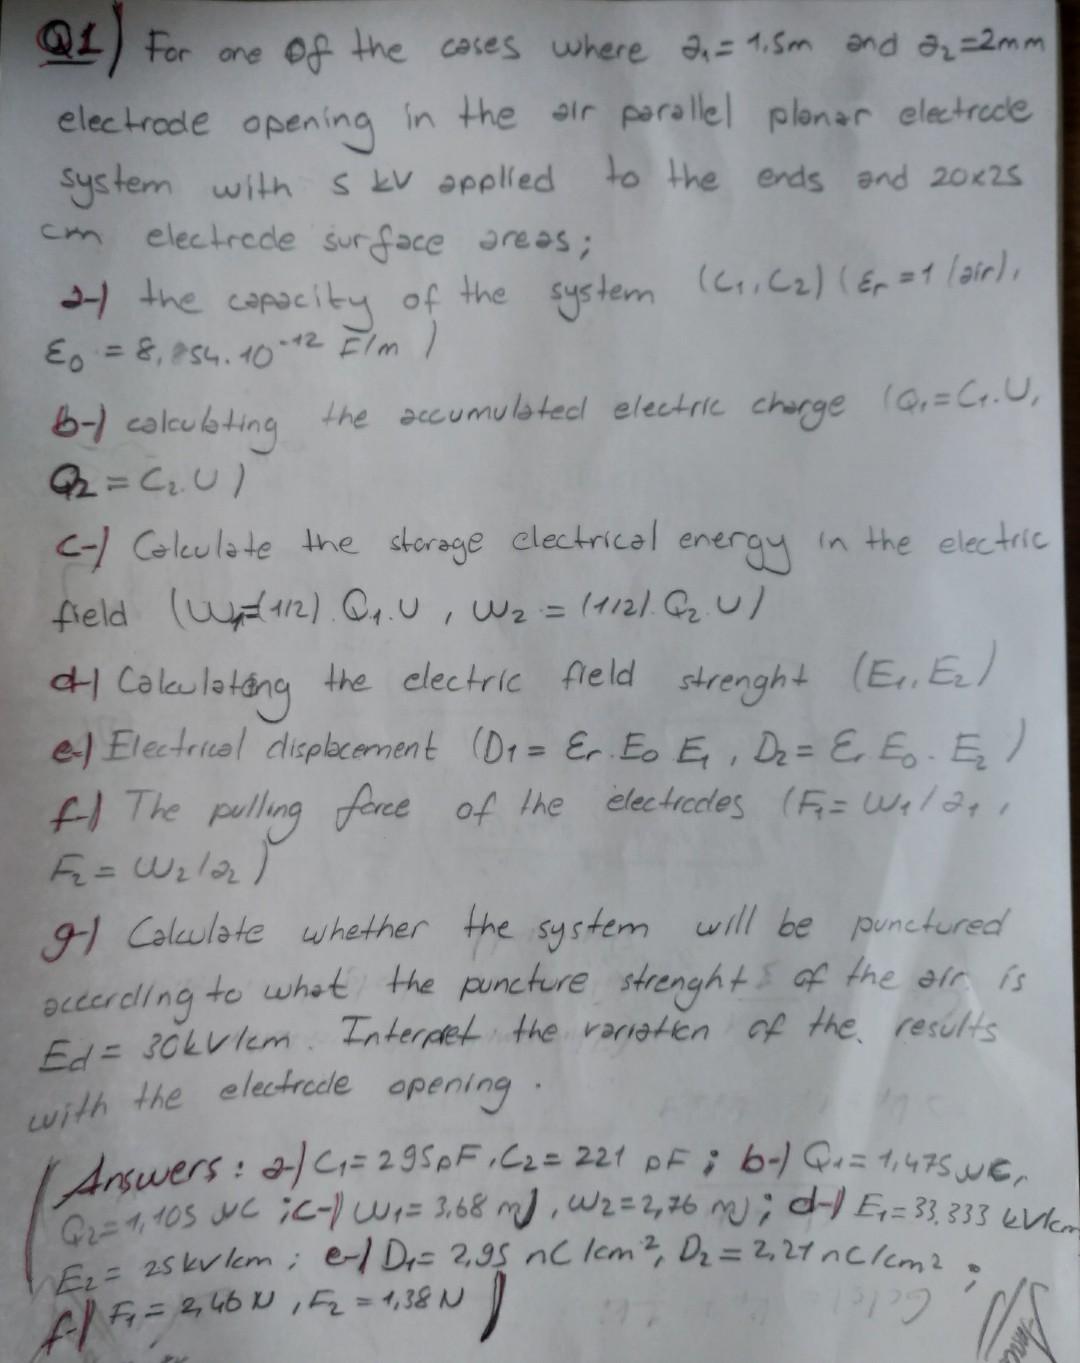 Q1) For one of the cases where a₁= 1,5m and a₂=2mm
electrode opening in the air parallel planar electrode
system with 5 kV applied to the ends and 20x25
cm electrode surface areas;
a-) the capacity of the system (C₁, C₂) (Ɛr =1 (air),
Ɛ0 = 8,854.10⁻¹² F/m )
b-) calculating the accumulated electric charge (Q₁=C₁.U,
Q2 = C₂.U )
c-) Calculate the storage electrical energy in the electric
field (W₁=(1/2).Q₁.U , W₂ = (1/2).Q₂.U)
d-) Calculating the electric field strenght (E₁, E₂)
e-) Electrical displacement (D1 = Ɛr.E0 E₁ , D₂= Ɛr E₀. E₂ )
f-) The pulling force of the electrodes (F₁= W₁/a₁ ,
F₂ = W₂/a₂ )
g-) Calculate whether the system will be punctured
according to what the puncture strenght of the air is
Ed = 30kV/cm. Interpret the variation of the results
with the electrode opening.
(Answers: a-) C₁= 295pF, C₂= 221 pF ; b-) Q₁= 1,475 µC,
Q₂= 1,105 µC ; c-) W₁= 3,68 mJ, W₂=2,76 mJ ; d-) E₁= 33,333 kV/cm
E₂ = 25kV/cm ; e-) D₁= 2,95 nC/cm², D₂ = 2,21 nC/cm² ;
f-) F₁ = 2,46 N , F₂ = 1,38 N )